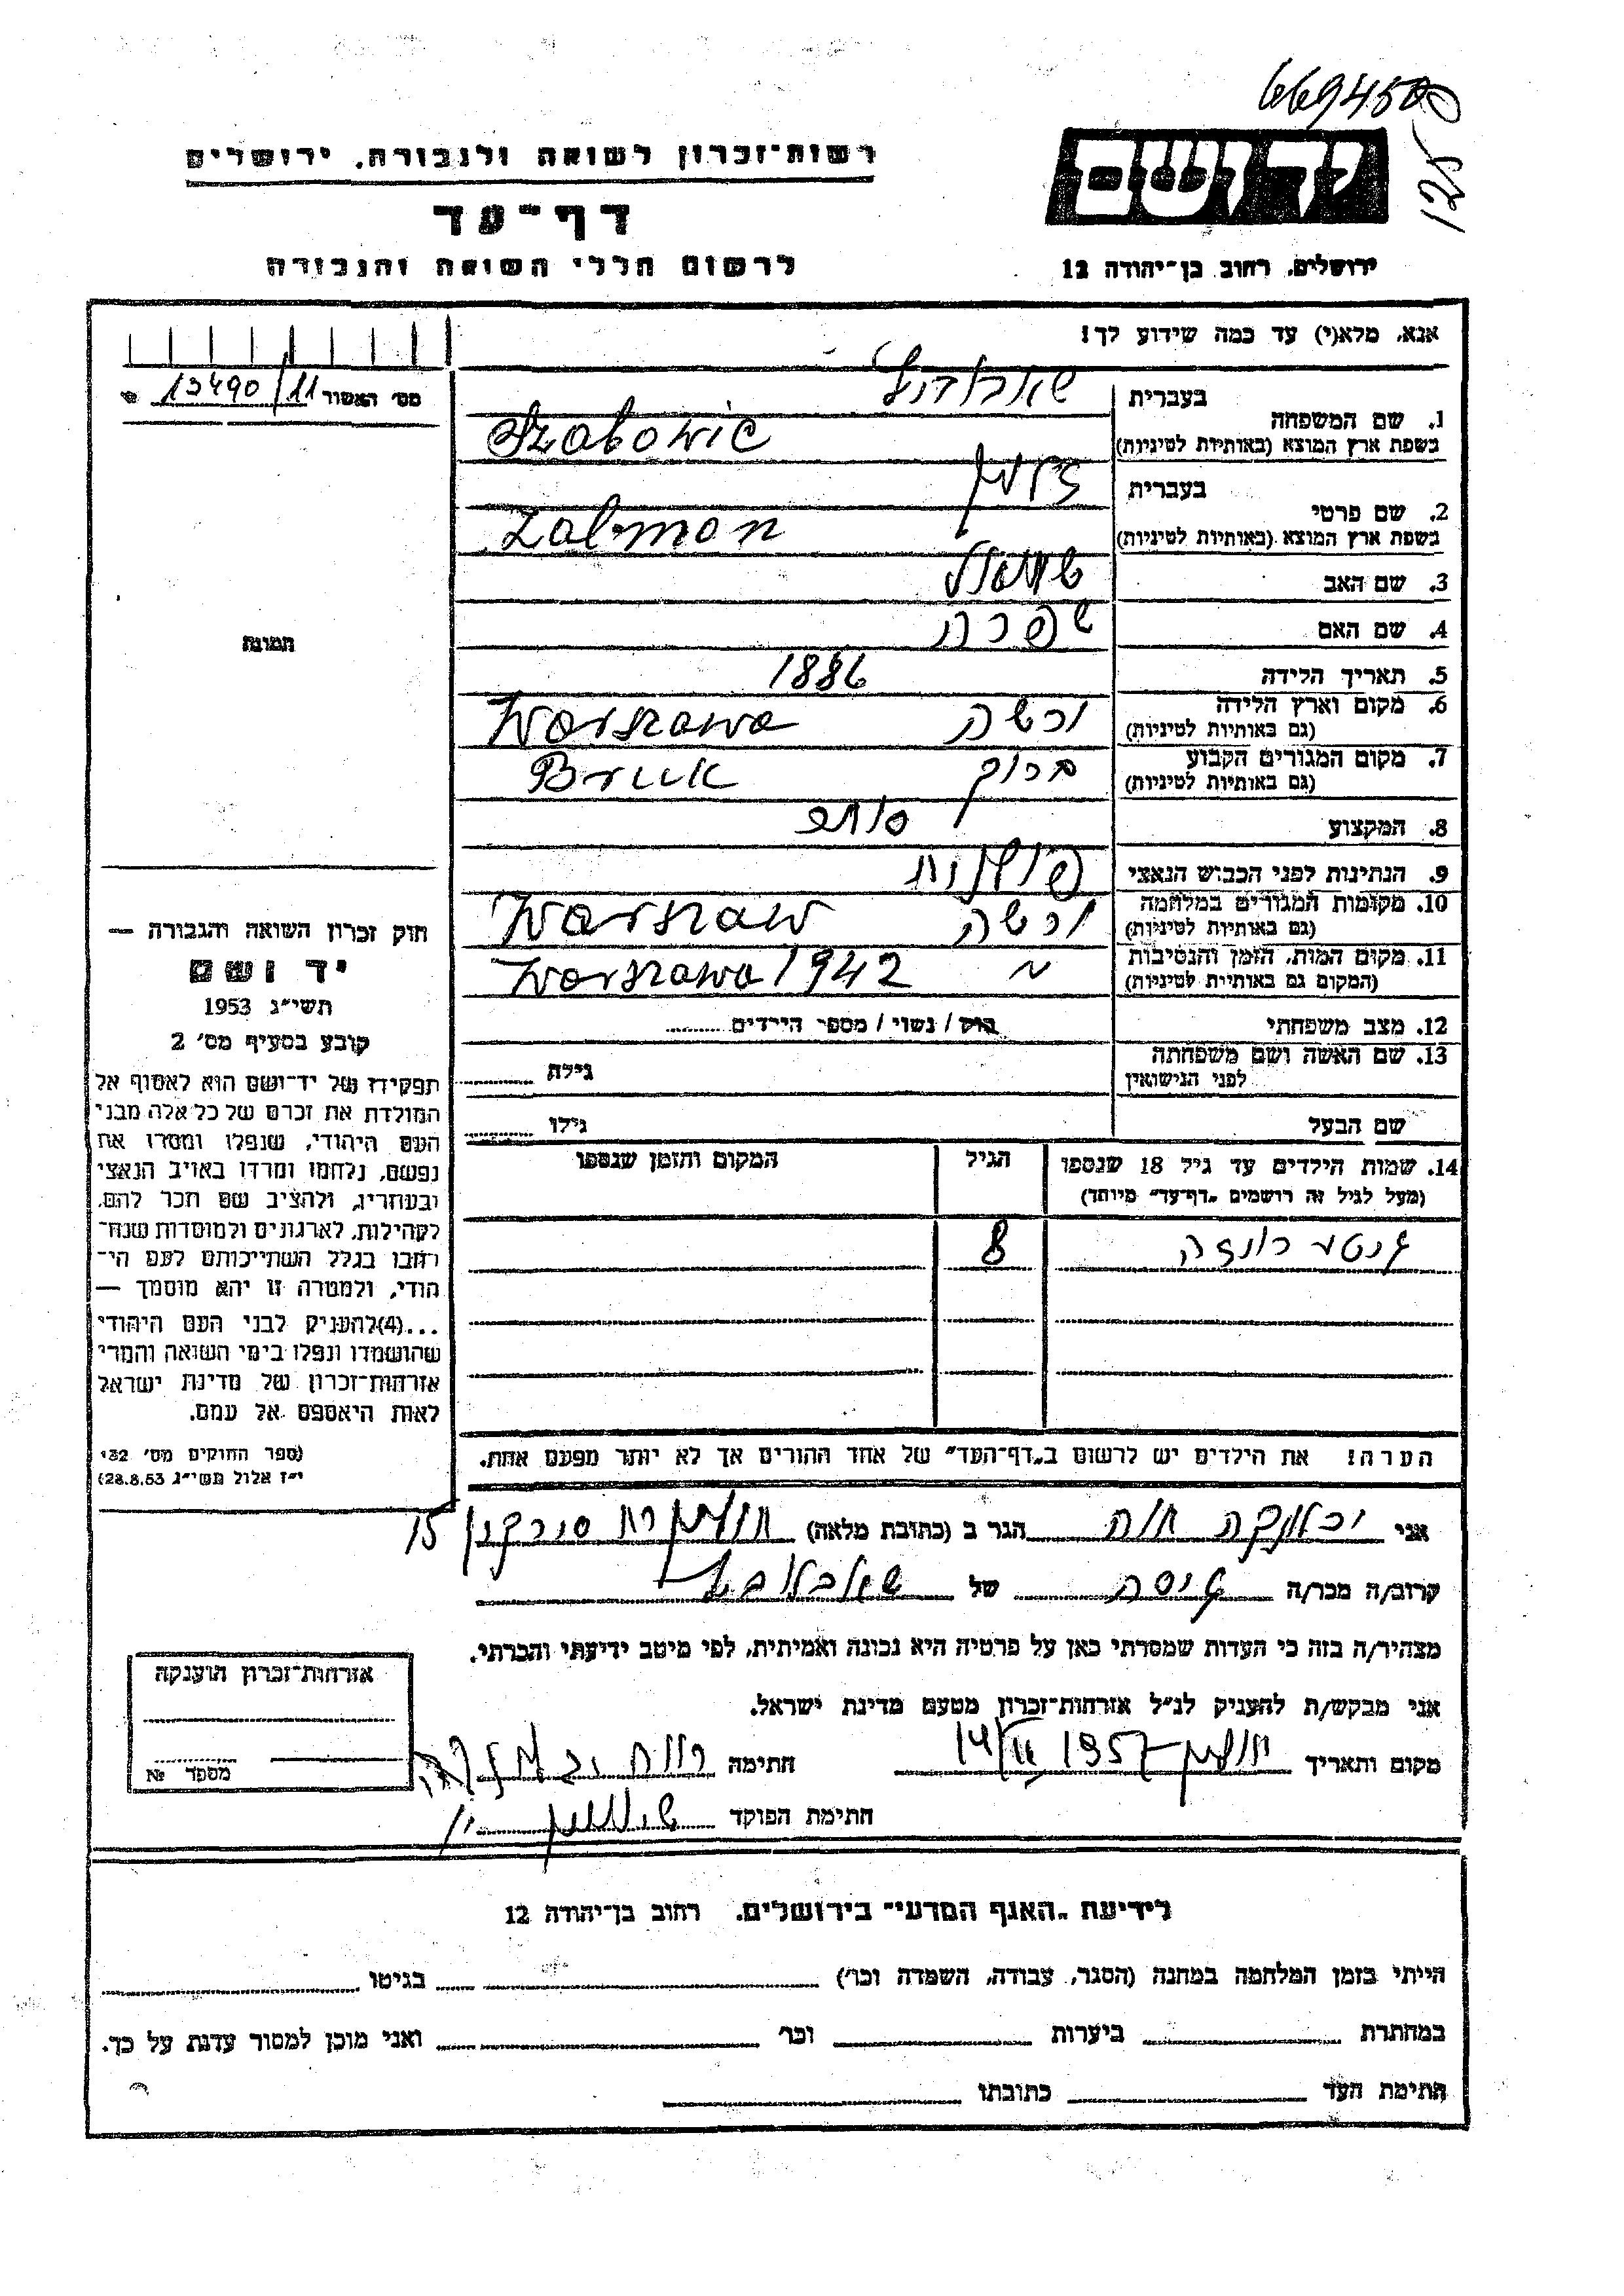 669450
125
רשות־זכרון לשואה ולגבורה, ירושלים
יד ושם
דף־עד
לרשום חללי השואה והגבורה
ירושלים, רחוב בן־יהודה 12
אנא, מלא(י) עד כמה שידוע לך!
מס׳ האשור 13490/11
1. שם המשפחה
בעברית
בשפת ארץ המוצא (באותיות לטיניות) Szabowic
2. שם פרטי
בעברית זלמן
בשפת ארץ המוצא (באותיות לטיניות) Zalman
3. שם האב
4. שם האם שפרה
5. תאריך הלידה 1886
6. מקום וארץ הלידה (גם באותיות לטיניות) ורשה Warszawa
7. מקום המגורים הקבוע (גם באותיות לטיניות) ברוק Bruuk
8. המקצוע סוחר
9. הנתינות לפני הכבוש הנאצי פולנית
10. מקומות המגורים במלחמה (גם באותיות לטיניות) ורשה Warszaw
11. מקום המות, הזמן והנסיבות (המקום גם באותיות לטיניות) Warszawa 1942
12. מצב משפחתי רוק / נשוי / מספר הילדים
13. שם האשה ושם משפחתה לפני הנישואין גילה
שם הבעל גילו
14. שמות הילדים עד גיל 18 שנספו (מעל לגיל זה רושמים „דף־עד״ מיוחד)
הגיל
המקום והזמן שנספו
8
הערה! את הילדים יש לרשום ב„דף־העד״ של אחד ההורים אך לא יותר מפעם אחת.
תמונה
חוק זכרון השואה והגבורה —
יד ושם
תשי״ג 1953
קובע בסעיף מס׳ 2
תפקידו של יד־ושם הוא לאסוף אל
המולדת את זכרם של כל אלה מבני
העם היהודי, שנפלו ומסרו את
נפשם, נלחמו ומרדו באויב הנאצי
ובעוזריו, ולהציב שם וזכר להם,
לקהילות, לארגונים ולמוסדות שנח־
רבו בגלל השתייכותם לעם הי־
הודי, ולמטרה זו יהא מוסמך —
...(4)להעניק לבני העם היהודי
שהושמדו ונפלו בימי השואה והמרי
אזרחות־זכרון של מדינת ישראל
לאות היאספם אל עמם.
(ספר החוקים מס׳ 132
י״ז אלול תשי״ג 28.8.53)
אני חוה הגר ב (כתובת מלאה) חולון רח׳ סוקולוב 15
קרוב/ה מכר/ה גיסה של
מצהיר/ה בזה כי העדות שמסרתי כאן על פרטיה היא נכונה ואמיתית, לפי מיטב ידיעתי והכרתי.
אני מבקש/ת להעניק לנ״ל אזרחות־זכרון מטעם מדינת ישראל.
מקום ותאריך חולון 14/II 1957 חתימה
חתימת הפוקד
אזרחות־זכרון הוענקה
מספר №
לידיעת „האגף המדעי״ בירושלים, רחוב בן־יהודה 12
הייתי בזמן המלחמה במחנה (הסגר, עבודה, השמדה וכר׳) בגיטו
במחתרת ביערות וכר׳ ואני מוכן למסור עדות על כך.
חתימת העד כתובתו